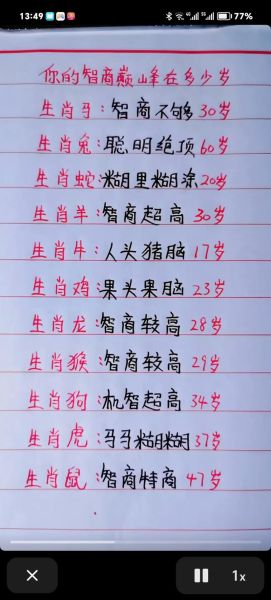 13:49 77%
你的智商巅峰在多少岁
生肖马:智商不够30岁
生肖兔:聪明绝顶60岁
生肖蛇:糊里糊涂20岁
生肖羊:智商超高30岁
生肖牛:人头猪脑17岁
生肖鸡:呆头呆脑23岁
生肖龙:智商较高28岁
生肖猴:智商较高29岁
生肖狗:机智超高34岁
生肖虎:马马糊糊37岁
生肖鼠:智商特高47岁
1x